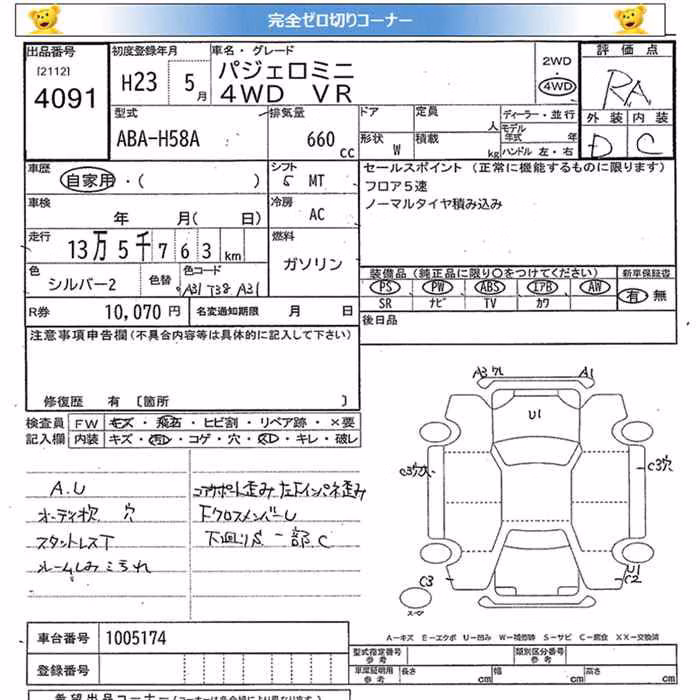 完全ゼロ切りコーナー
出品番号
[2112]
4091
初度登録年月
H23 5月
車名・グレード
パジェロミニ
4WD VR
2WD
・
4WD
評価点
RA
外装 内装
D C
型式
ABA-H58A
排気量
660 cc
ドア
定員
人
形状
W
積載
kg
ディーラー・並行
モデル年式 年
ハンドル 左・右
車歴
自家用・( )
シフト
5 MT
セールスポイント (正常に機能するものに限ります)
フロア5速
ノーマルタイヤ積み込み
車検
年 月( 日)
冷房
AC
走行
13万5千763km
燃料
ガソリン
色
シルバー2
色替
色コード
A31 T38 A31
装備品(純正品に限り〇をつけてください)
PS PW ABS エアB AW
SR ナビ TV カワ
新車保証書
有 無
R券
10,070円
名変通知期限 月 日
後日品
注意事項申告欄(不具合内容等は具体的に記入して下さい)
修復歴 有 [箇所 ]
検査員
記入欄
FW キズ・飛石・ヒビ割・リペア跡・×要
内装 キズ・汚レ・コゲ・穴・スレ・キレ・破レ
A.U
オーディオ次 穴
スタットレス下
ルームしみこちれ
コアサポート歪み 左Fインパネ歪み
FクロスメンバーU
下廻りS 一部C
A3ワレ
A1
U1
C3穴
C3穴
C3
U1
C2
A－キズ E－エクボ U－凹み W－補修跡 S－サビ C－腐食 XX－交換済
車台番号
1005174
登録番号
型式指定番号
参考
類別区分番号
参考
車庫証明用
参考
長さ cm 幅 cm 高さ cm
希望出品コーナー(コーナーは会場により異なります)